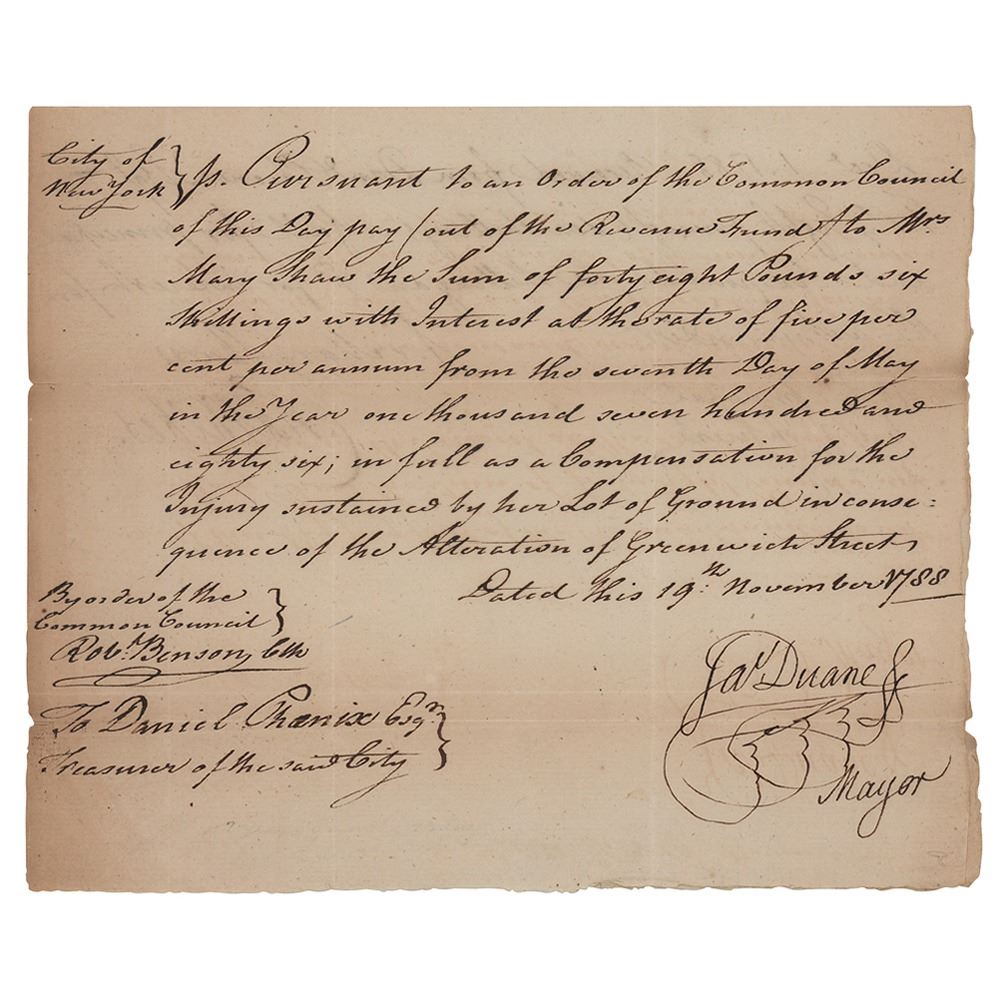 City of
New York } ss. Pursuant to an Order of the Common Council
of this Day pay (out of the Revenue Fund) to Mrs
Mary Shaw the Sum of forty eight Pounds six
Shillings with Interest at the rate of five per
cent per annum from the seventh Day of May
in the Year one thousand seven hundred and
eighty six; in full as a Compensation for the
Injury sustained by her Lot of Ground in conse:
quence of the Alteration of Greenwich Street
Dated this 19th November 1788
By order of the
Common Council }
Robt Benson Clk
Jas Duane
Mayor
To Daniel Phœnix Esqr
Treasurer of the said City }